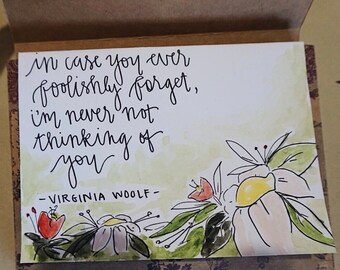 in case you ever
foolishly forget,
i'm never not
thinking of
you
- VIRGINIA WOOLF -